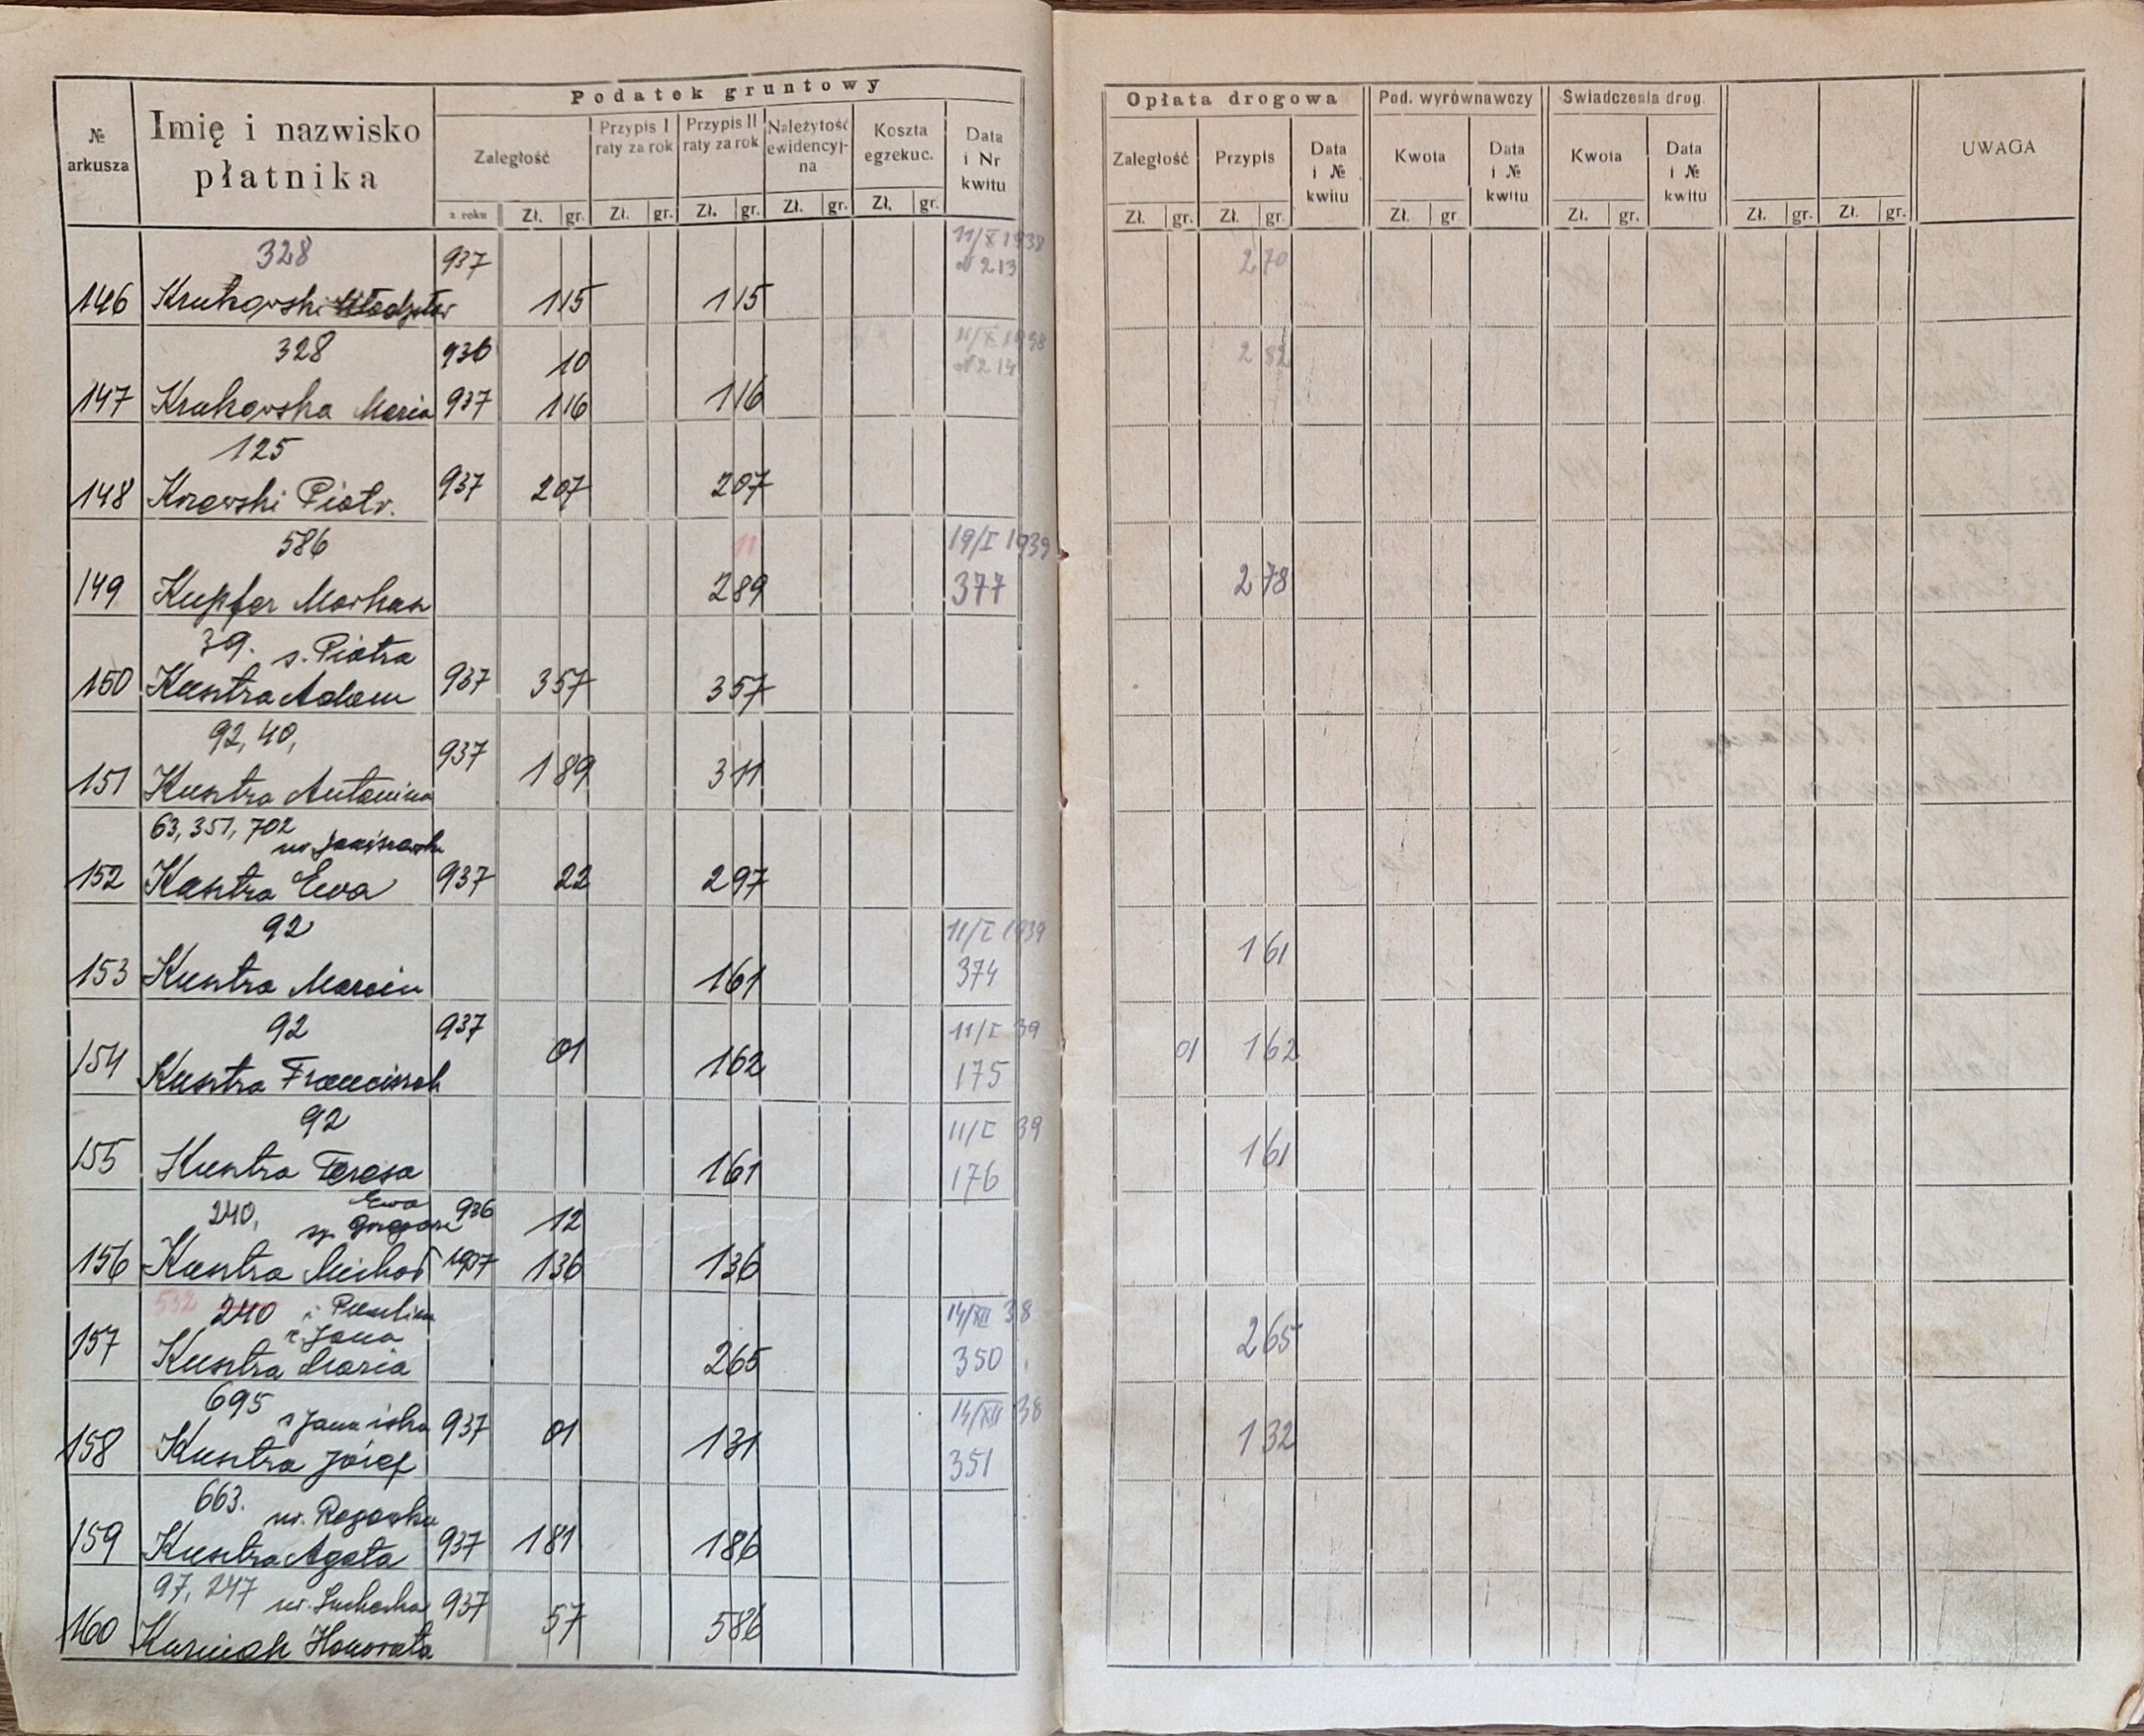 Podatek gruntowy
Opłata drogowa Pod. wyrównawczy Świadczenia drog.
№ arkusza
Imię i nazwisko płatnika
Zaległość
Przypis I raty za rok
Przypis II raty za rok
Należytość ewidencyj-na
Koszta egzekuc.
Data i Nr kwitu
Zaległość
Przypis
Data i № kwitu
Kwota
Data i № kwitu
Kwota
Data i № kwitu
UWAGA
z roku Zł. gr. Zł. gr. Zł. gr. Zł. gr. Zł. gr.
Zł. gr. Zł. gr. Zł. gr Zł. gr. Zł. gr. Zł. gr.
328 937 11/X 1938 2 70
№ 213
146 Krukowski 1 15 1 15
328 936 10 11/X 1938 2 82
№ 214
147 Krukowska Maria 937 1 16 1 16
125
148 Kozewski Piotr. 937 2 07 2 07
586 11 19/I 1939
149 Kupfer 2 89 377 2 78
39. s. Piotra
150 Kustra Adam 937 3 57 3 57
92, 40, 937
151 Kustra Antonina 1 89 3 11
63, 351, 702
152 Kustra Ewa 937 22 2 97
92 11/I 1939
153 Kustra Marcin 1 61 374 1 61
92 937 11/I 39
154 Kustra Franciszek 01 1 62 175 01 1 62
92 11/I 39
155 Kustra Teresa 1 61 176 1 61
Ewa
240, 936 12
156 Kustra Michał 1937 1 36 1 36
532 240 i Paulina 14/XII 38
z Jana
157 Kustra Maria 2 65 350 2 65
695 14/XII 38
158 Kustra Józef 937 01 1 31 351 1 32
663.
159 Kustra Agata 937 1 81 1 86
97, 247 ur. Suchecka 937
160 Kuźniak Honorata 57 5 86